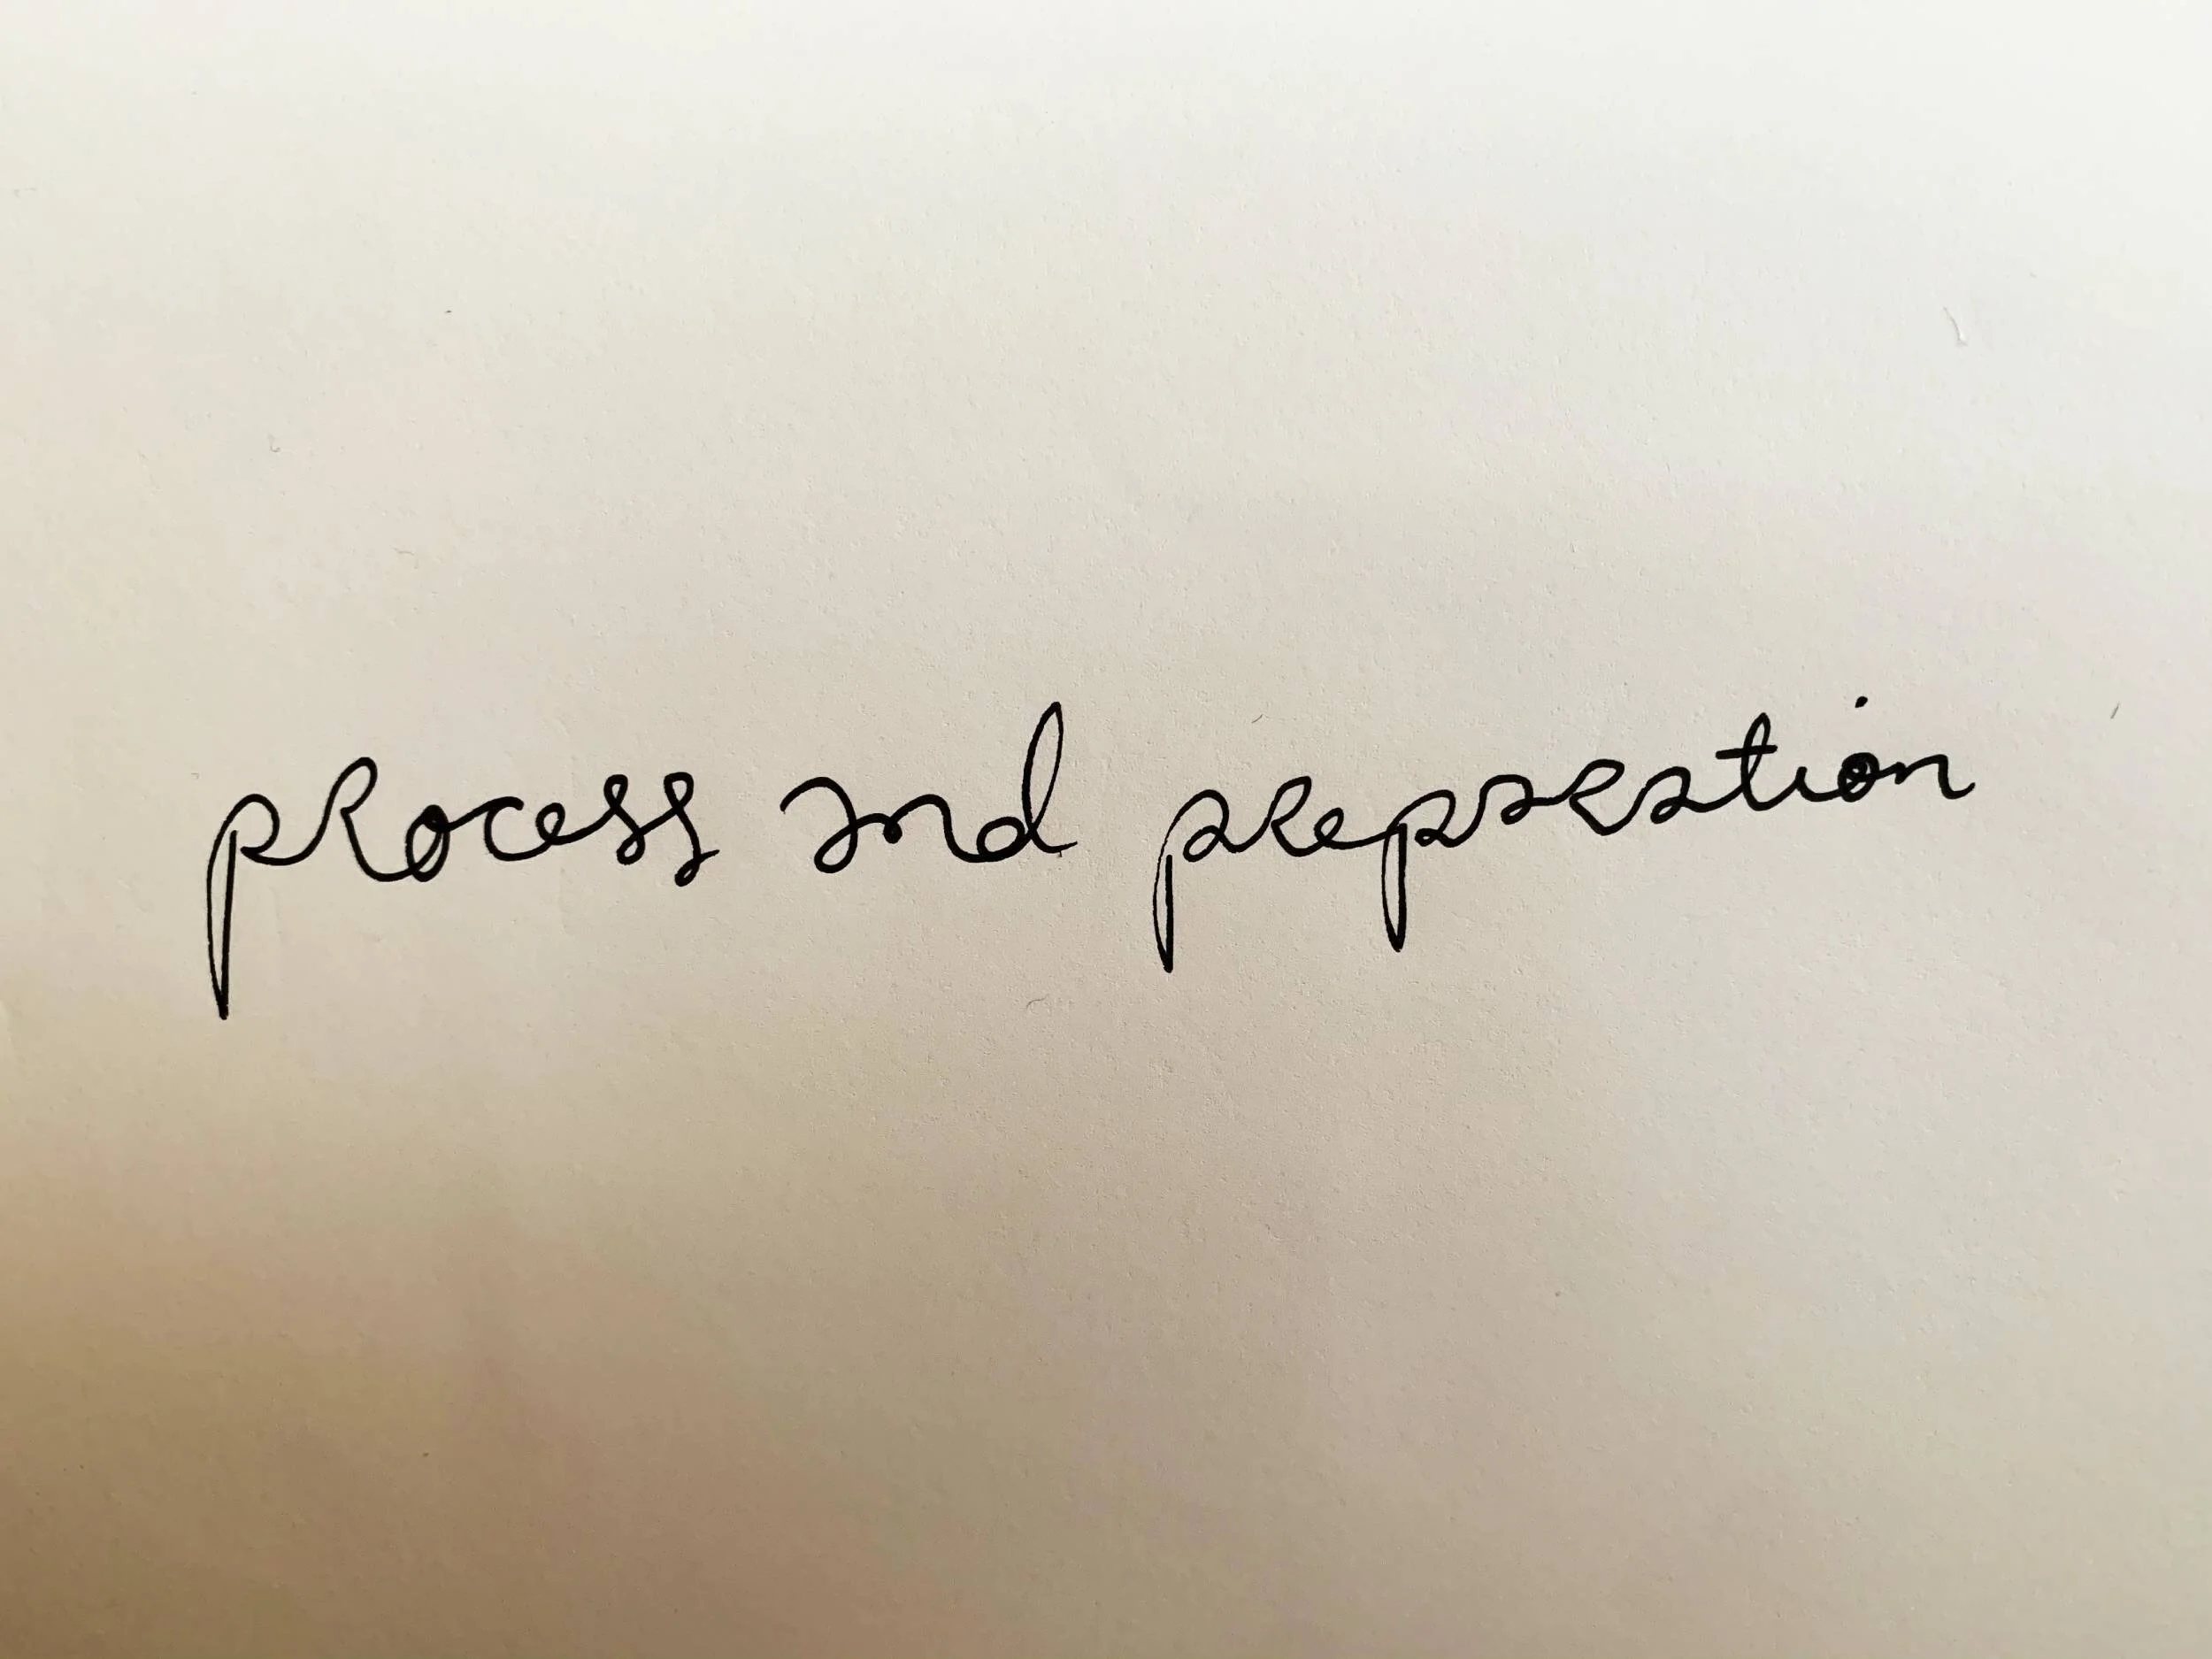 process and preparation